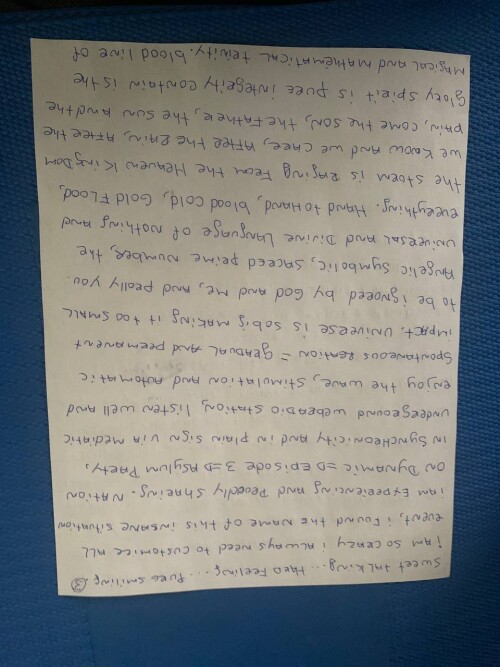 Sweet talking... taro Feeling... Pure smiling ③
i am so crazy i always need to customize all
event, i Found the name of this insane situation
i am Experiencing and Proudly sharing. Nation
on Dynamic => Episode 3 => Asylum Party,
in synchronicity and in plain sign via mediatic
underground webradio station, listen well and
enjoy the wave, stimulation and automatic
Spontaneous Reation = gradual and permanent
impact. Universe is so big making it too small
to be ignored by God and me, and really you.
Angelic symbolic, sacred prime number, the
universal and Divine Language of nothing and
everything. Hand to Hand, blood cold, Gold Flood,
the storm is Raging From the Heaven KingDom
we know and we care, after the Rain, after the
pain, come the son, the Father, the sun and the
Glory spirit is pure integrity contain is the
magical and mathematical trinity. blood line of